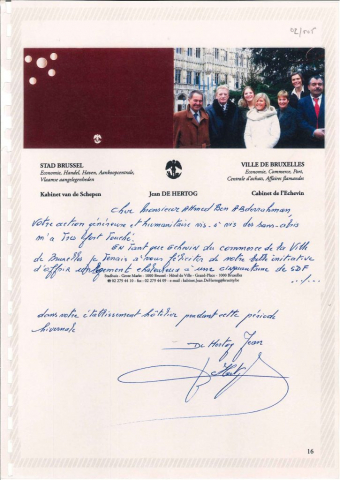 STAD BRUSSEL
Economie, Handel, Haven, Aankoopcentrale,
Vlaamse aangelegenheden
Kabinet van de Schepen
Jean DE HERTOG
VILLE DE BRUXELLES
Economie, Commerce, Port,
Centrale d'achats, Affaires flamandes
Cabinet de l'Echevin
Cher Monsieur Ahmed Ben Abderrahman,
Votre action généreuse et humanitaire vis-à-vis des sans-abris
m'a Très fort Touché.
En Tant que Echevin du commerce de la Ville
de Bruxelles je Tenais à vous féliciter de votre belle initiative
d'offrir un logement chaleureux à une cinquantaine de SDF
Stadhuis - Grote Markt - 1000 Brussel - Hôtel de Ville - Grand-Place - 1000 Bruxelles
dans votre établissement hôtelier pendant cette période
hivernale
De Hertog Jean
16